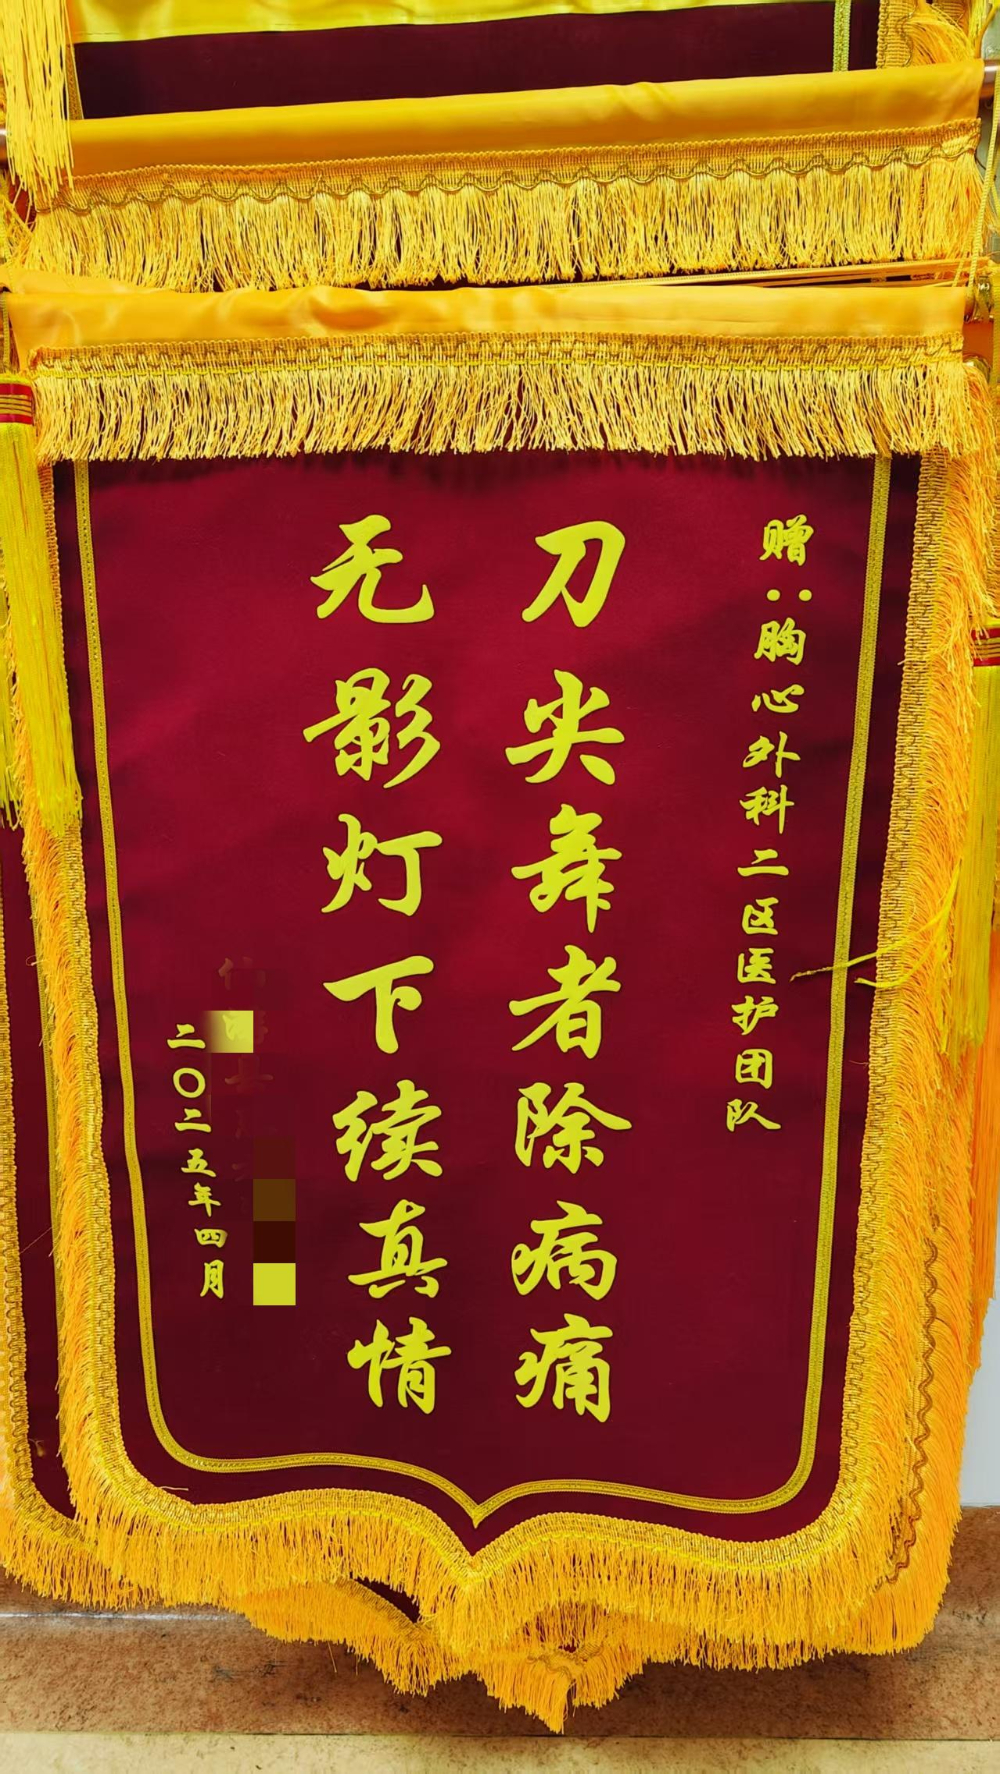 赠：胸心外科二区医护团队
刀尖舞者除病痛
无影灯下续真情
二〇二五年四月